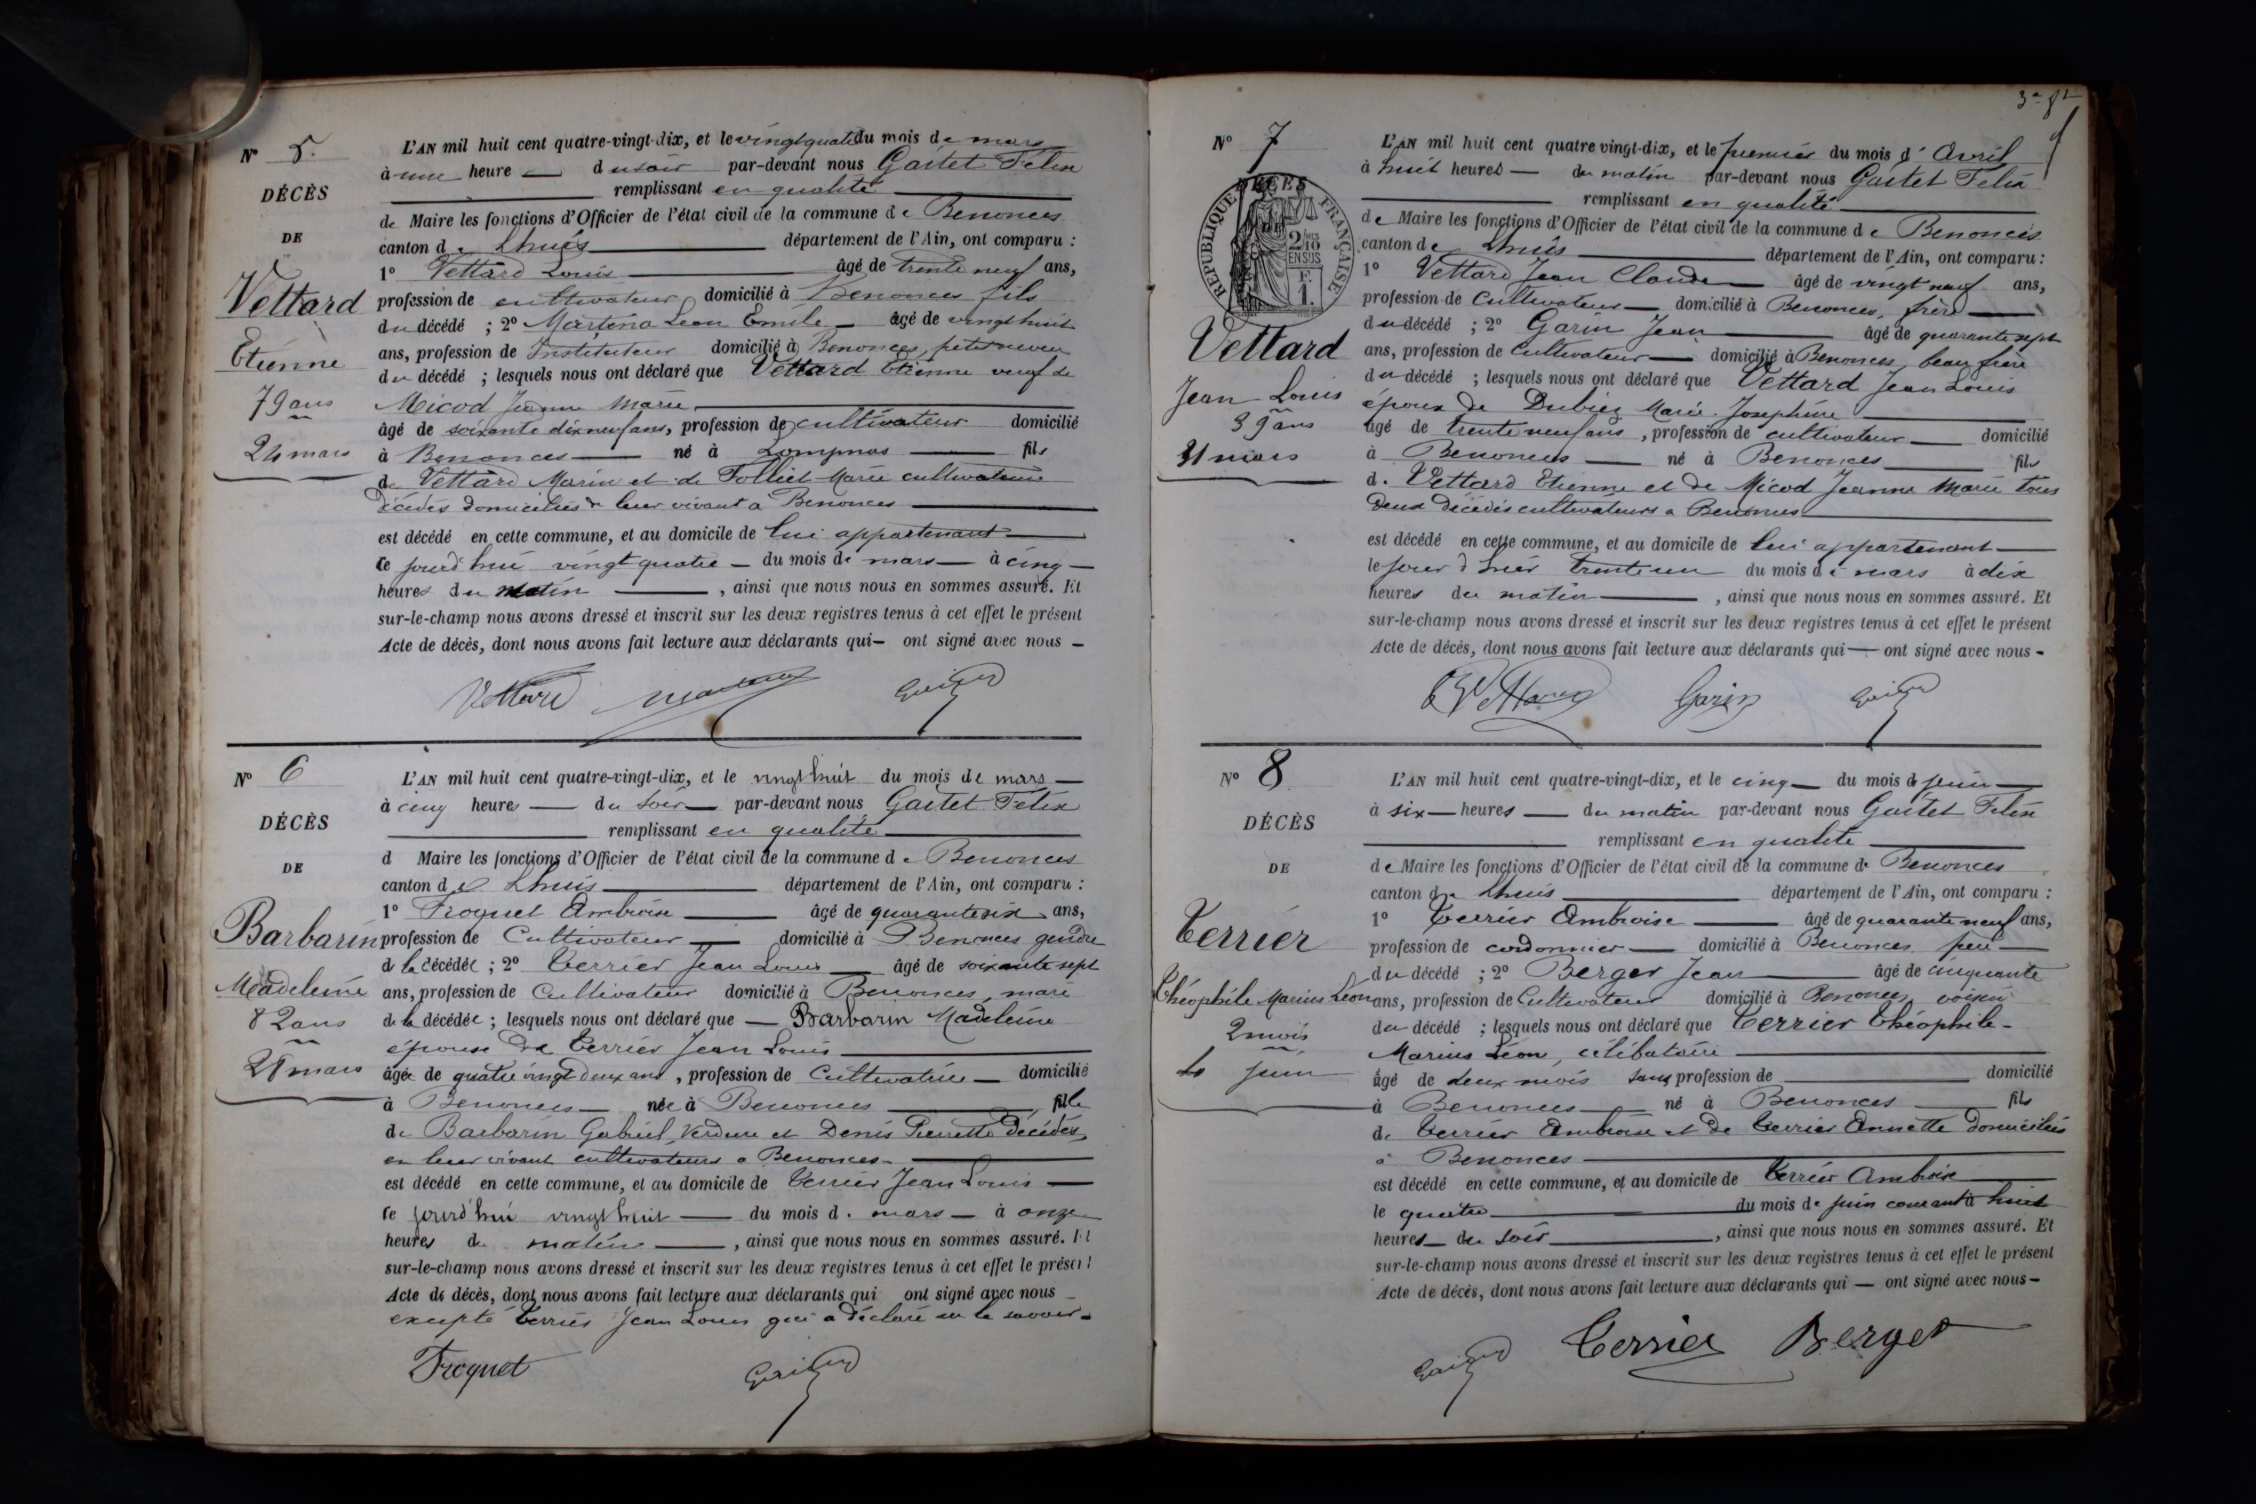 N° 5.
DÉCÈS
DE
Vettard
Etienne
79 ans
24 mars
L'AN mil huit cent quatre-vingt-dix, et le vingt quatre du mois de mars
à une heure du soir par-devant nous Gaitet Félix
remplissant en qualité
de Maire les fonctions d'Officier de l'état civil de la commune de Benonces
canton de Lhuis département de l'Ain, ont comparu :
1° Vettard Louis âgé de trente neuf ans,
profession de cultivateur domicilié à Benonces fils
du décédé ; 2° Martena Leon Emile âgé de vingt huit
ans, profession de Instituteur domicilié à Benonces, petit neveu
du décédé ; lesquels nous ont déclaré que Vettard Etienne veuf de
Micod Jeanne Marie
âgé de soixante dix neuf ans, profession de cultivateur domicilié
à Benonces né à Lompnas fils
de Vettard Marin et de Folliet Marie cultivateurs
décédés domiciliés de leur vivant à Benonces
est décédé en cette commune, et au domicile de lui appartenant
ce jourd'hui vingt quatre du mois de mars à cinq
heures du matin , ainsi que nous nous en sommes assuré. Et
sur-le-champ nous avons dressé et inscrit sur les deux registres tenus à cet effet le présent
Acte de décès, dont nous avons fait lecture aux déclarants qui ont signé avec nous
Vettard
N° 6
DÉCÈS
DE
Barbarin
Madeleine
82 ans
28 mars
L'AN mil huit cent quatre-vingt-dix, et le vingt huit du mois de mars
à cinq heures du soir par-devant nous Gaitet Félix
remplissant en qualité
d Maire les fonctions d'Officier de l'état civil de la commune de Benonces
canton de Lhuis département de l'Ain, ont comparu :
1° Froquet Ambroise âgé de quarante six ans,
profession de Cultivateur domicilié à Benonces gendre
de la décédée ; 2° Terrier Jean Louis âgé de soixante sept
ans, profession de Cultivateur domicilié à Benonces, mari
de la décédée ; lesquels nous ont déclaré que Barbarin Madeleine
épouse de Terrier Jean Louis
âgée de quatre vingt deux ans, profession de Cultivatrice domicilié
à Benonces née à Benonces fille
de Barbarin Gabriel, Verdure et Denis Pierrette décédés,
en leur vivant cultivateurs à Benonces
est décédé en cette commune, et au domicile de Terrier Jean Louis
ce jourd'hui vingt huit du mois de mars à onze
heures du matin , ainsi que nous nous en sommes assuré. Et
sur-le-champ nous avons dressé et inscrit sur les deux registres tenus à cet effet le présent
Acte de décès, dont nous avons fait lecture aux déclarants qui ont signé avec nous
excepté Terrier Jean Louis qui a déclaré ne le savoir
Froquet
N° 7
DÉCÈS
RÉPUBLIQUE FRANÇAISE
2/10 EN SUS
Vettard
Jean Louis
39 ans
31 mars
L'AN mil huit cent quatre vingt-dix, et le premier du mois d'Avril
à huit heures du matin par-devant nous Gaitet Félix
remplissant en qualité
de Maire les fonctions d'Officier de l'état civil de la commune de Benonces
canton de Lhuis département de l'Ain, ont comparu :
1° Vettard Jean Claude âgé de vingt neuf ans,
profession de Cultivateur domicilié à Benonces, frère
du décédé ; 2° Garin Jean âgé de quarante sept
ans, profession de Cultivateur domicilié à Benonces, beau frère
du décédé ; lesquels nous ont déclaré que Vettard Jean Louis
époux de Dubiez Marie Joséphine
âgé de trente neuf ans, profession de cultivateur domicilié
à Benonces né à Benonces fils
d. Vettard Etienne et de Micod Jeanne Marie tous
deux décédés cultivateurs à Benonces
est décédé en cette commune, et au domicile de lui appartenant
le jour d'hier trente un du mois de mars à dix
heures du matin , ainsi que nous nous en sommes assuré. Et
sur-le-champ nous avons dressé et inscrit sur les deux registres tenus à cet effet le présent
Acte de décès, dont nous avons fait lecture aux déclarants qui ont signé avec nous
Vettard Garin
N° 8
DÉCÈS
DE
Terrier
Théophile Marius Léon
2 mois
4 juin
L'AN mil huit cent quatre-vingt-dix, et le cinq du mois de juin
à six heures du matin par-devant nous Gaitet Félix
remplissant en qualité
de Maire les fonctions d'Officier de l'état civil de la commune de Benonces
canton de Lhuis département de l'Ain, ont comparu :
1° Terrier Ambroise âgé de quarante neuf ans,
profession de cordonnier domicilié à Benonces père
du décédé ; 2° Berger Jean âgé de cinquante
ans, profession de Cultivateur domicilié à Benonces, voisin
du décédé ; lesquels nous ont déclaré que Terrier Théophile
Marius Léon, célibataire
âgé de deux mois sans profession de domicilié
à Benonces né à Benonces fils
de Terrier Ambroise et de Terrier Annette domiciliés
à Benonces
est décédé en cette commune, et au domicile de Terrier Ambroise
le quatre du mois de juin courant à huit
heures du soir , ainsi que nous nous en sommes assuré. Et
sur-le-champ nous avons dressé et inscrit sur les deux registres tenus à cet effet le présent
Acte de décès, dont nous avons fait lecture aux déclarants qui ont signé avec nous
Terrier Berger